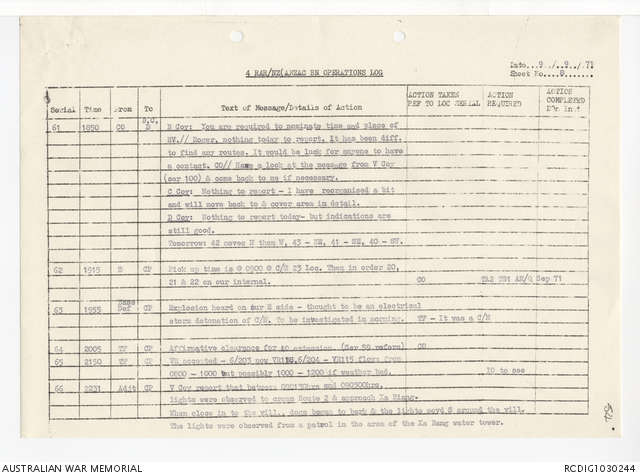 4 RAR/NZ(ANZAC BN OPERATIONS LOG
Date...9../..9../.71
Sheet No....8......
Serial Time From To Text of Message/Details of Action ACTION TAKEN REF TO LOC SERIAL ACTION REQUIRED ACTION COMPLETED
61 1850 CO B,C, D B Coy: You are required to nominate time and place of
RV.// Roger, nothing today to report. It has been diff.
to find any routes. It would be luck for anyone to have
a contact. CO// Have a look at the message from V Coy
(ser 100) & come back to me if necessary.
C Coy: Nothing to report - I have reorganised a bit
and will move back to & cover area in detail.
D Coy: Nothing to report today- but indications are
still good.
Tomorrow: 42 moves N then W, 43 - NE, 41 - NE, 40 - NW.
62 1915 B CP Pick up time is @ 0900 @ C/S 23 loc. Then in order 20,
21 & 22 on our internal. CO Sep 71
63 1955 Base Def CP Explosion heard on our E side - thought to be an electrical
storm detonation of C/M. To be investigated in morning. TF - It was a C/M
64 2005 TF CP Affirmative clearance for AO extension. (Ser 59 refers) CO
65 2150 TF CP VR accepted - 6/203 now 6/204 - VR115 floss from
0800 - 1000 but possibly 1000 - 1200 if weather bad. IO to see
66 2231 Adjt CP V Coy report that between 080130hrs and 080300hrs,
lights were observed to cross Route 2 & approach Xa Bang.
When close in to the vill., dogs began to bark & the lights movd S around the vill.
The lights were observed from a patrol in the area of the Xa Bang water tower.
AUSTRALIAN WAR MEMORIAL
RCDIG1030244